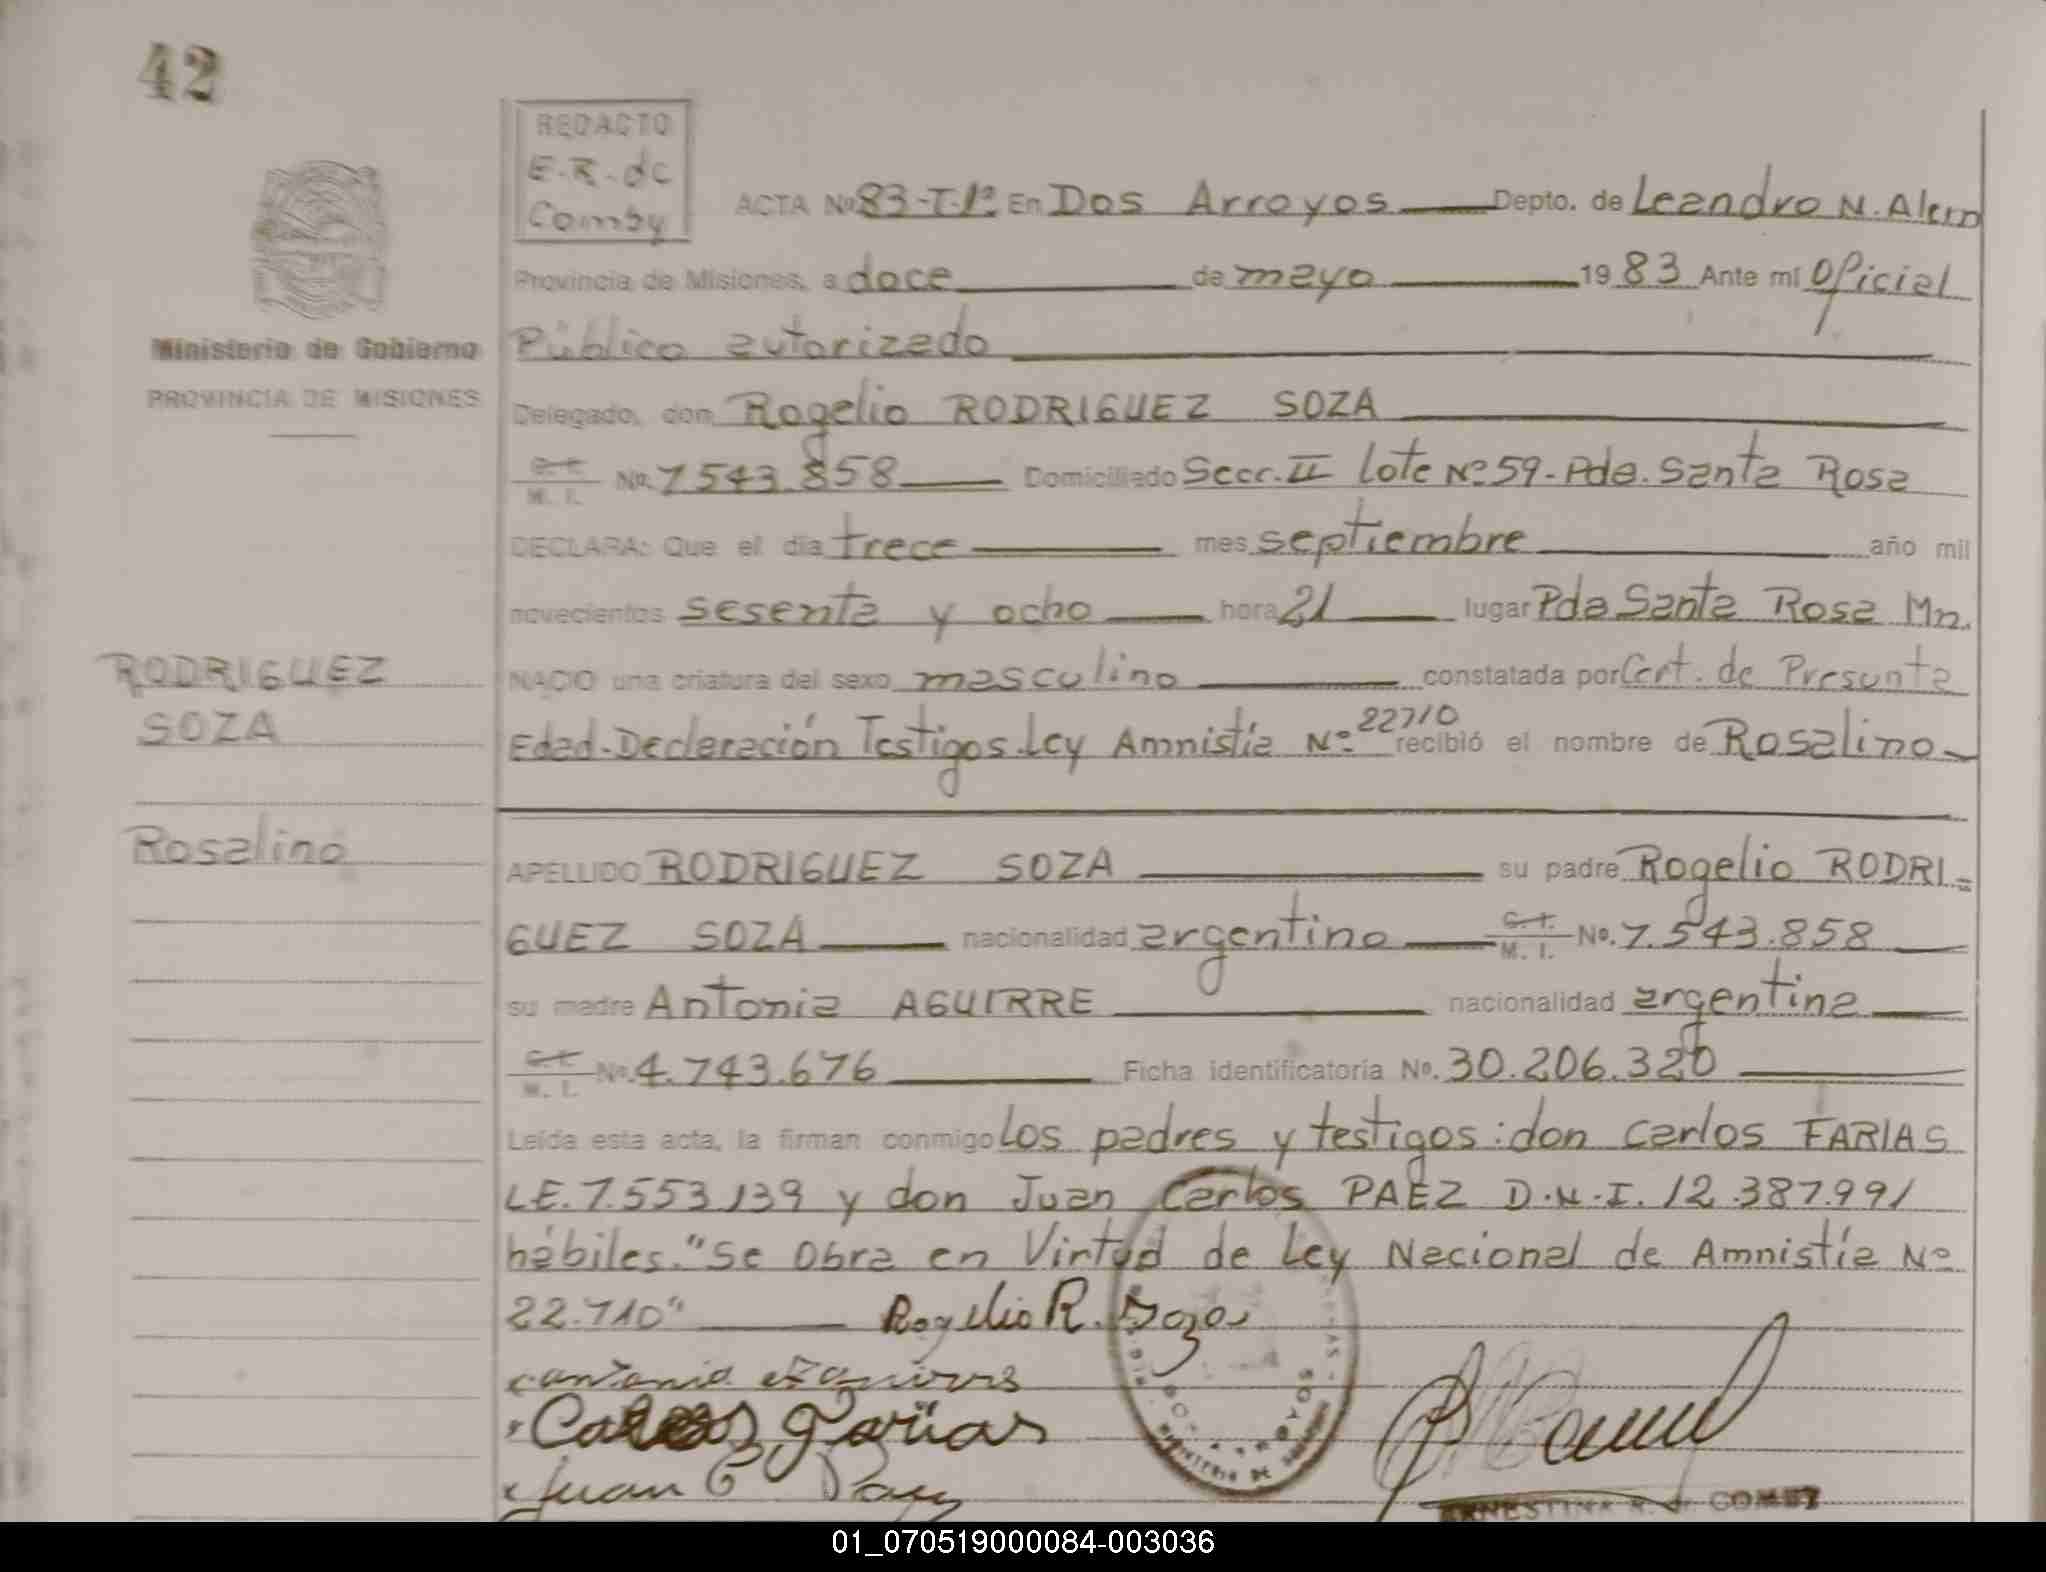 42
REDACTO
E.R. de
Comby
ACTA No 83-T.1º En Dos Arroyos Depto. de Leandro N. Alem
Provincia de Misiones, a doce de mayo 1983 Ante mí Oficial
Ministerio de Gobierno
PROVINCIA DE MISIONES
Público autorizado
Delegado, don Rogelio RODRIGUEZ SOZA
C.I. M. I. No. 7.543.858 Domiciliado Secc. II Lote Nº 59 - Pda. Santa Rosa
DECLARA: Que el día trece mes septiembre año mil
novecientos sesenta y ocho hora 21 lugar Pda Santa Rosa Mn.
RODRIGUEZ
SOZA
Rosalino
NACIO una criatura del sexo masculino constatada por Cert. de Presunta
Edad-Declaración Testigos-Ley Amnistía Nº 22710 recibió el nombre de Rosalino
APELLIDO RODRIGUEZ SOZA su padre Rogelio RODRI-
GUEZ SOZA nacionalidad argentino C.I. M. I. No. 7.543.858
su madre Antonia AGUIRRE nacionalidad argentina
C.I. M. I. No. 4.743.676 Ficha identificatoria No. 30.206.320
Leída esta acta, la firman conmigo los padres y testigos: don Carlos FARIAS
LE. 7.553.139 y don Juan Carlos PAEZ D.N.I. 12.387.991
hábiles. "Se Obra en Virtud de Ley Nacional de Amnistía Nº
22.710"
Rogelio R. Soza
Carlos Farias
Juan C Paez
ERNESTINA R. de COMBY
01_070519000084-003036